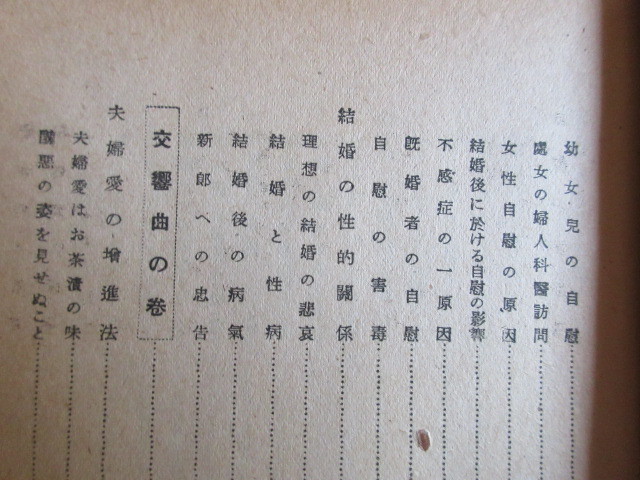 幼女兒の自慰
處女の婦人科醫訪問
女性自慰の原因
結婚後に於ける自慰の影響
不感症の一原因
既婚者の自慰
自慰の害毒
結婚の性的關係
理想の結婚の悲哀
結婚と性病
結婚後の病氣
新郎への忠告
交響曲の卷
夫婦愛の增進法
夫婦愛はお茶漬の味
醜惡の姿を見せぬこと